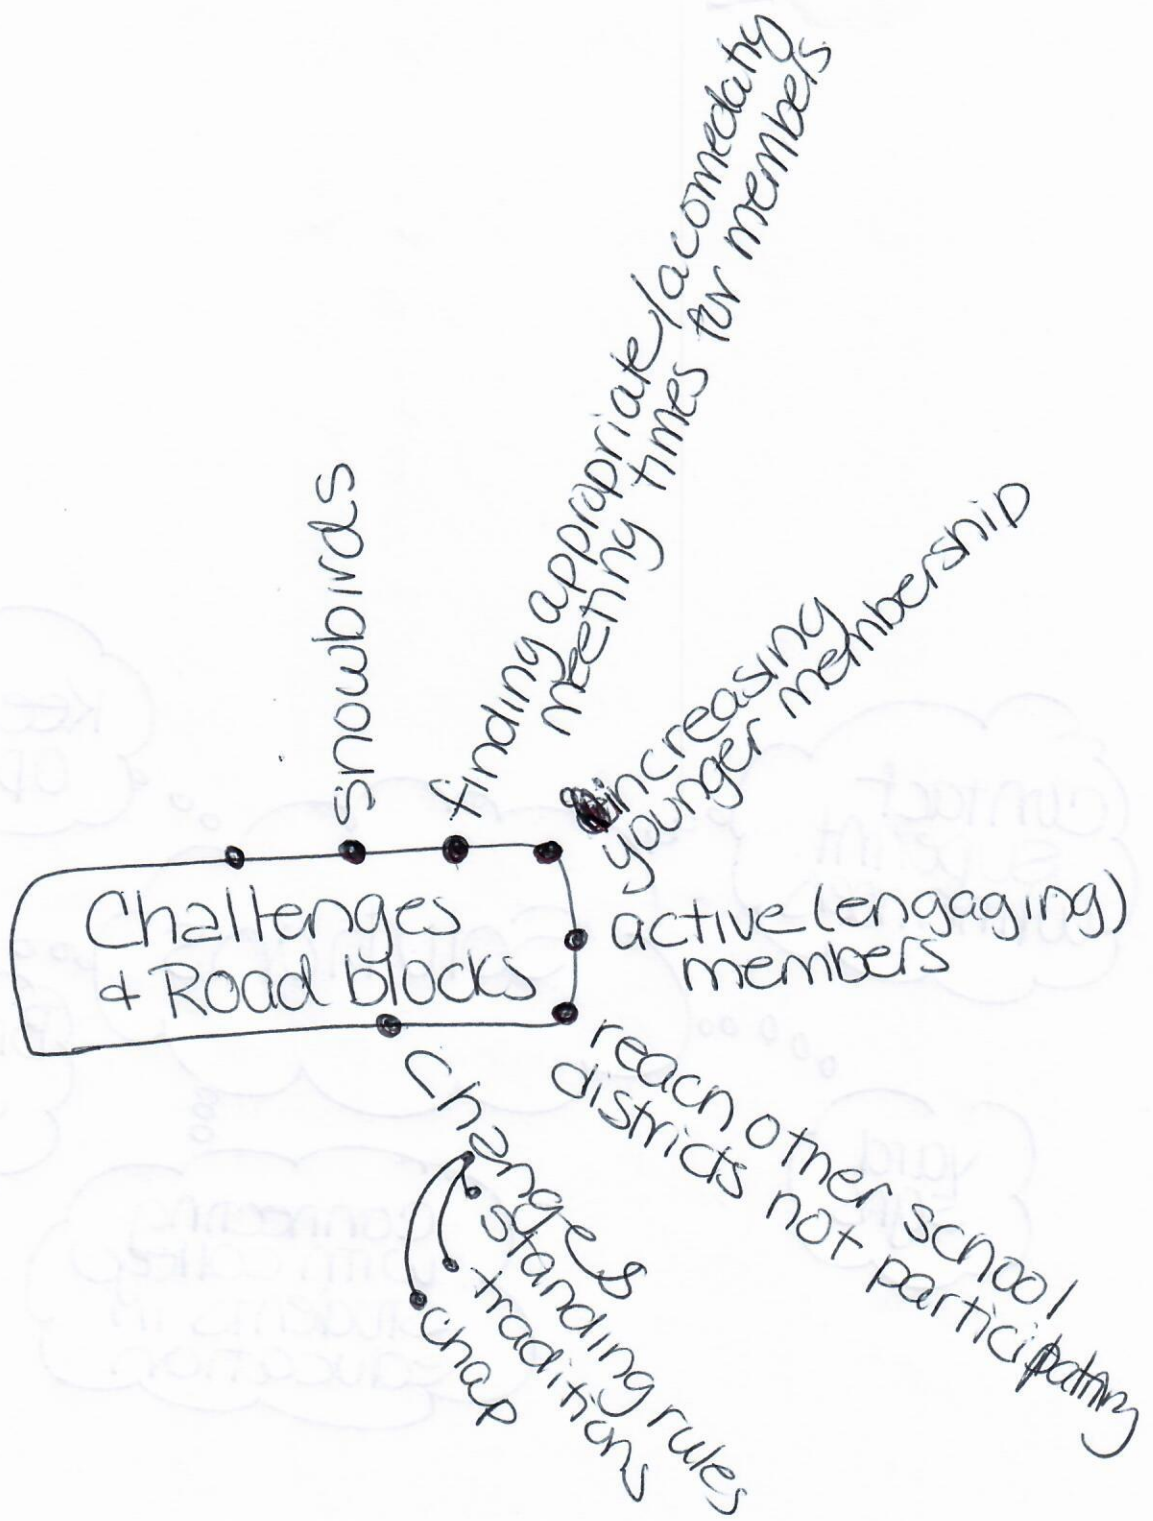 Challenges
& Road blocks
snowbirds
finding appropriate/acomedating
meeting times for members
increasing
younger membership
active (engaging)
members
reach other school
districts not participating
Changes
standing rules
traditions
chap